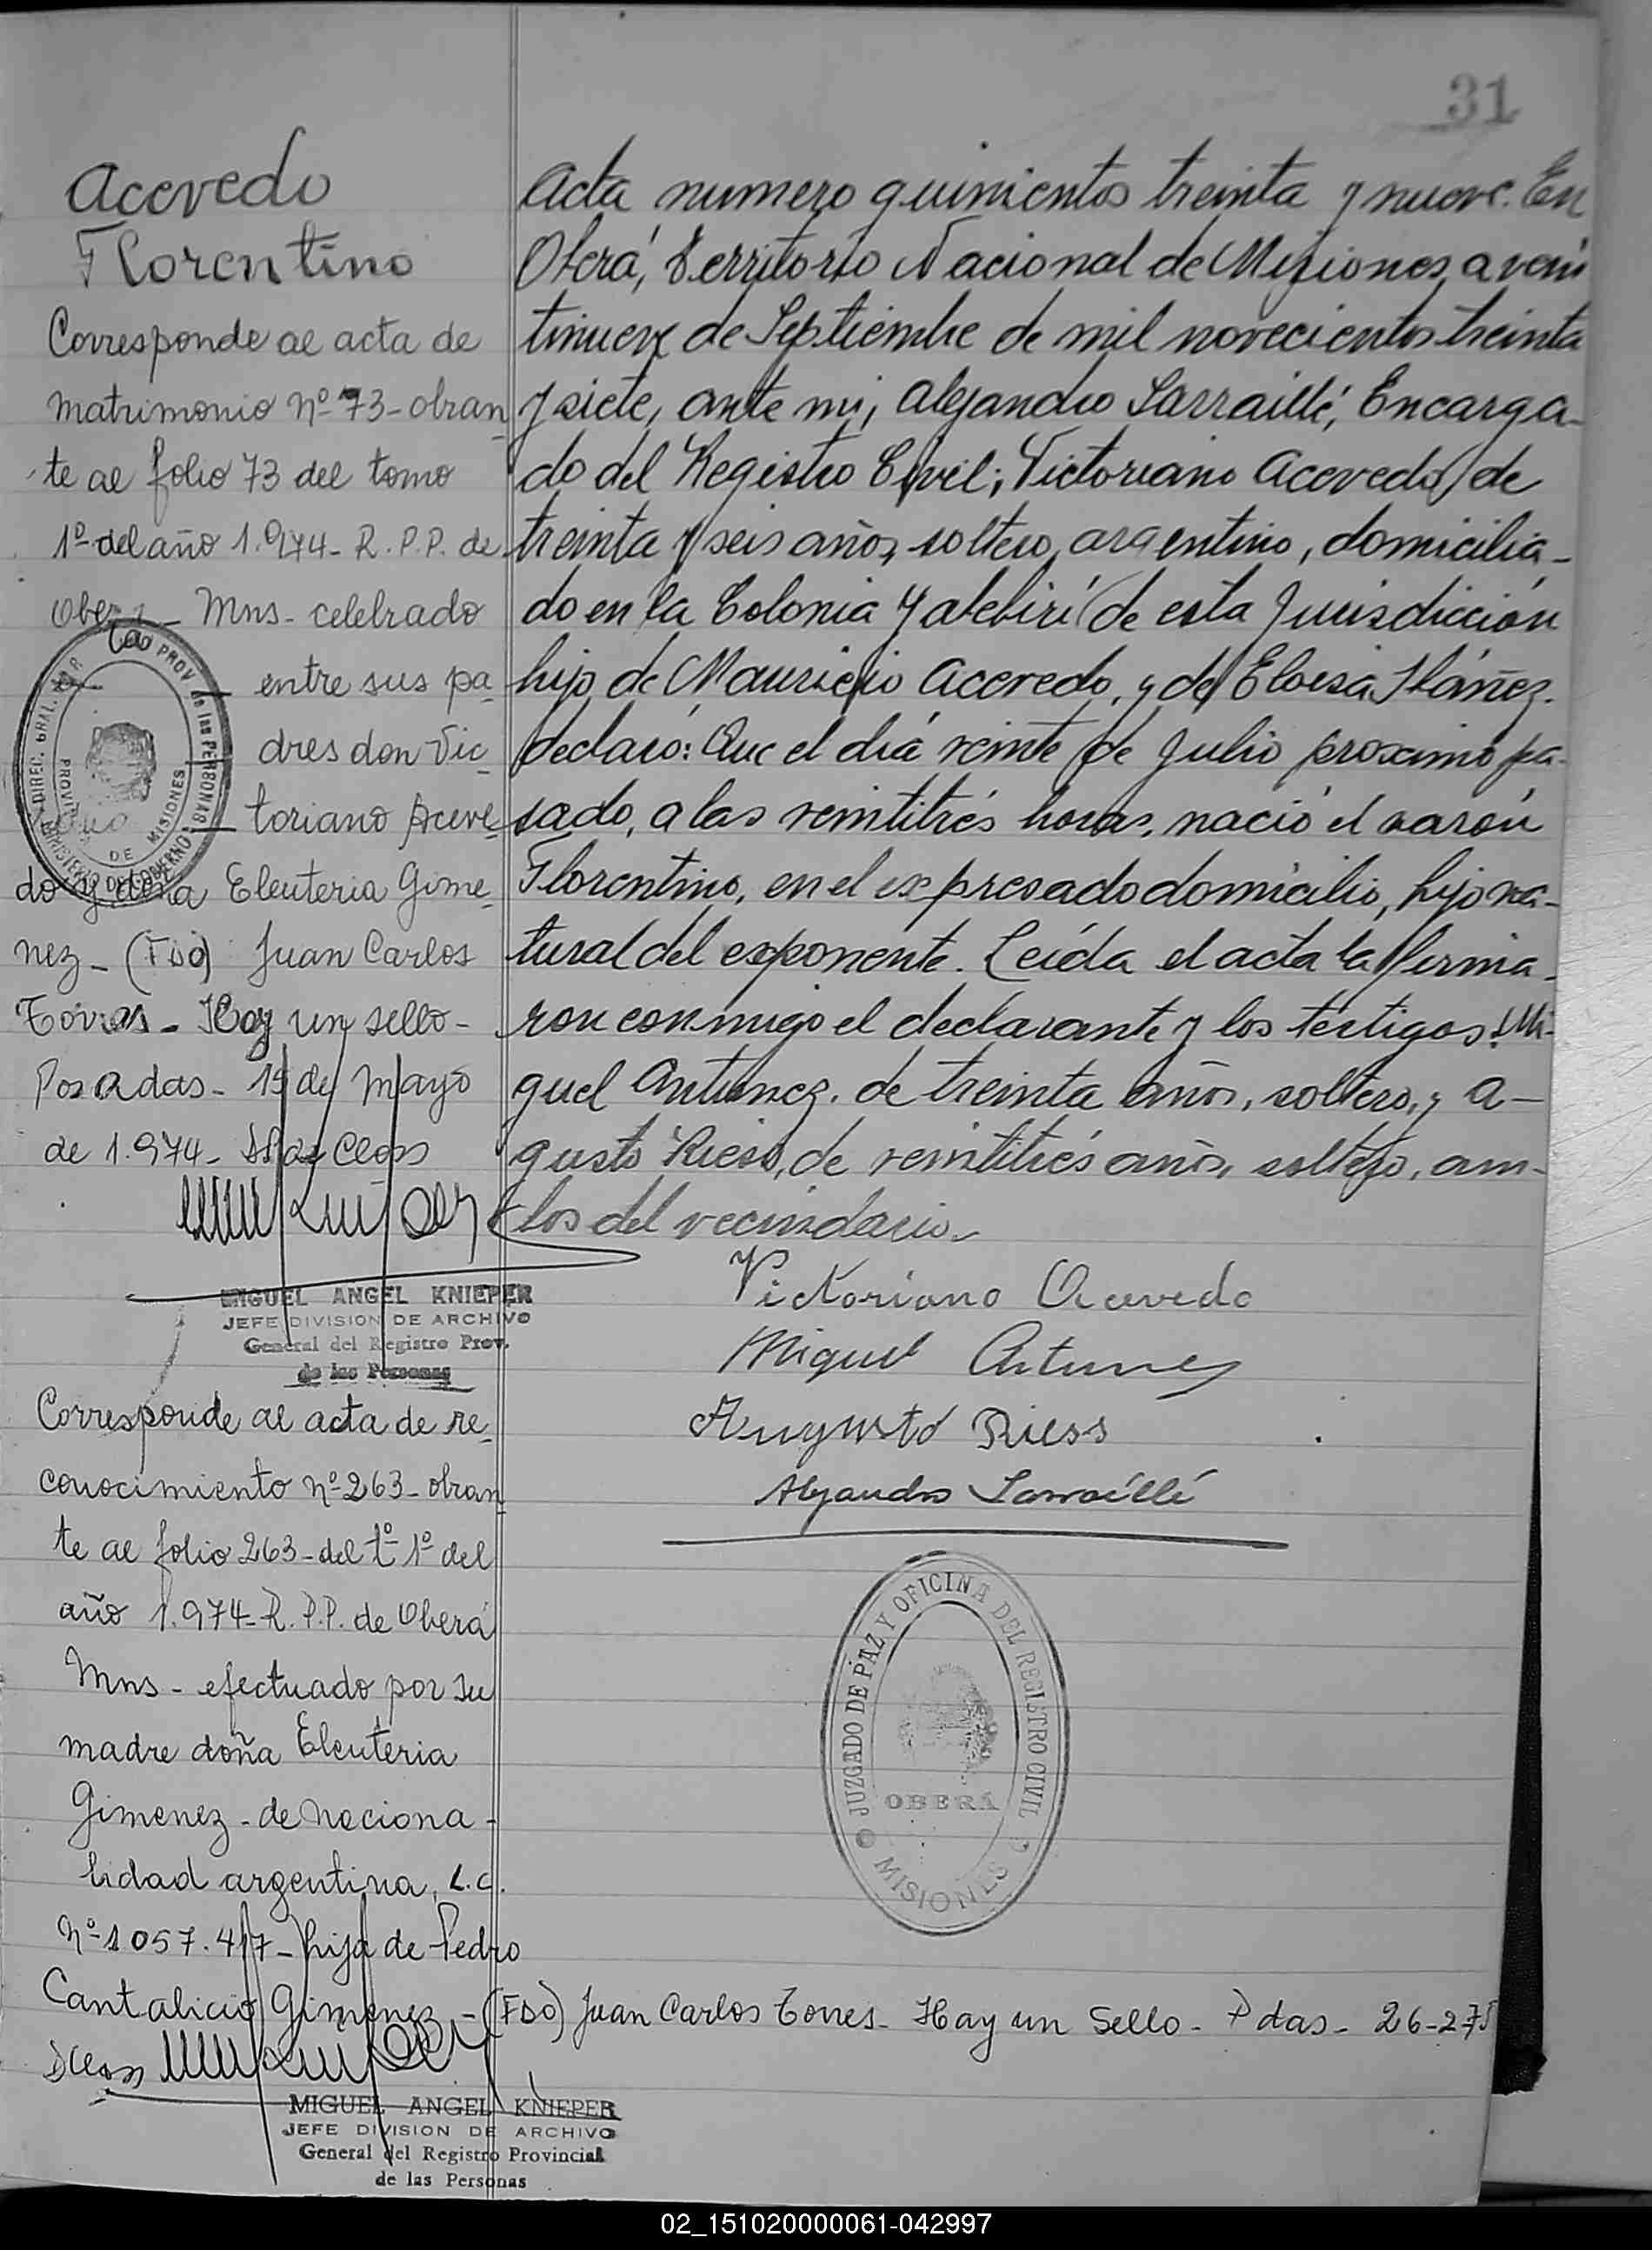 31
Acevedo
Florentino
Corresponde al acta de
matrimonio nº 73- obran
te al folio 73 del tomo
1º del año 1.974- R.P.P. de
Oberá - Mns- celebrado
entre sus pa
dres don Vic
toriano Aceve
do y doña Eleuteria Gime
nez - (Fdo) Juan Carlos
Torres - Hay un sello -
Posadas - 15 de mayo
de 1.974-
MIGUEL ANGEL KNIEPER
JEFE DIVISION DE ARCHIVO
General del Registro Prov.
de las Personas
Corresponde al acta de re
conocimiento nº 263- obran
te al folio 263- del tº 1º del
año 1.974- R.P.P. de Oberá
Mns - efectuado por su
madre doña Eleuteria
Gimenez - de naciona-
lidad argentina, L.C.
Nº 1057.417- hija de Pedro
Cantalicio Gimenez - (Fdo) Juan Carlos Torres- Hay un Sello - Pdas- 26-2-75
MIGUEL ANGEL KNIEPER
JEFE DIVISION DE ARCHIVO
General del Registro Provincial
de las Personas
Acta numero quinientos treinta y nueve. En
Oberá, Territorio Nacional de Misiones, a vein
tinueve de Septiembre de mil novecientos treinta
y siete, ante mi, Alejandro Sarraillé, Encarga-
do del Registro Civil; Victoriano Acevedo, de
treinta y seis años, soltero, argentino, domicilia-
do en la Colonia Yabebirí de esta Jurisdicción
hijo de Mauricio Acevedo, y de Eloisa Ibáñez.
declaró: Que el día veinte de Julio proximo pa-
sado, a las veintitrés horas, nació el varón
Florentino, en el expresado domicilio, hijo na-
tural del exponente. Leída el acta la firma-
ron conmigo el declarante y los testigos: Mi-
guel Antunez, de treinta años, soltero, y A-
gusto Riess, de veintitrés años, soltero, am-
bos del vecindario.
Victoriano Acevedo
Miguel Antunez
Augusto Riess
Alejandro Sarraillé
JUZGADO DE PAZ Y OFICINA DEL REGISTRO CIVIL
OBERÁ
MISIONES
02_151020000061-042997